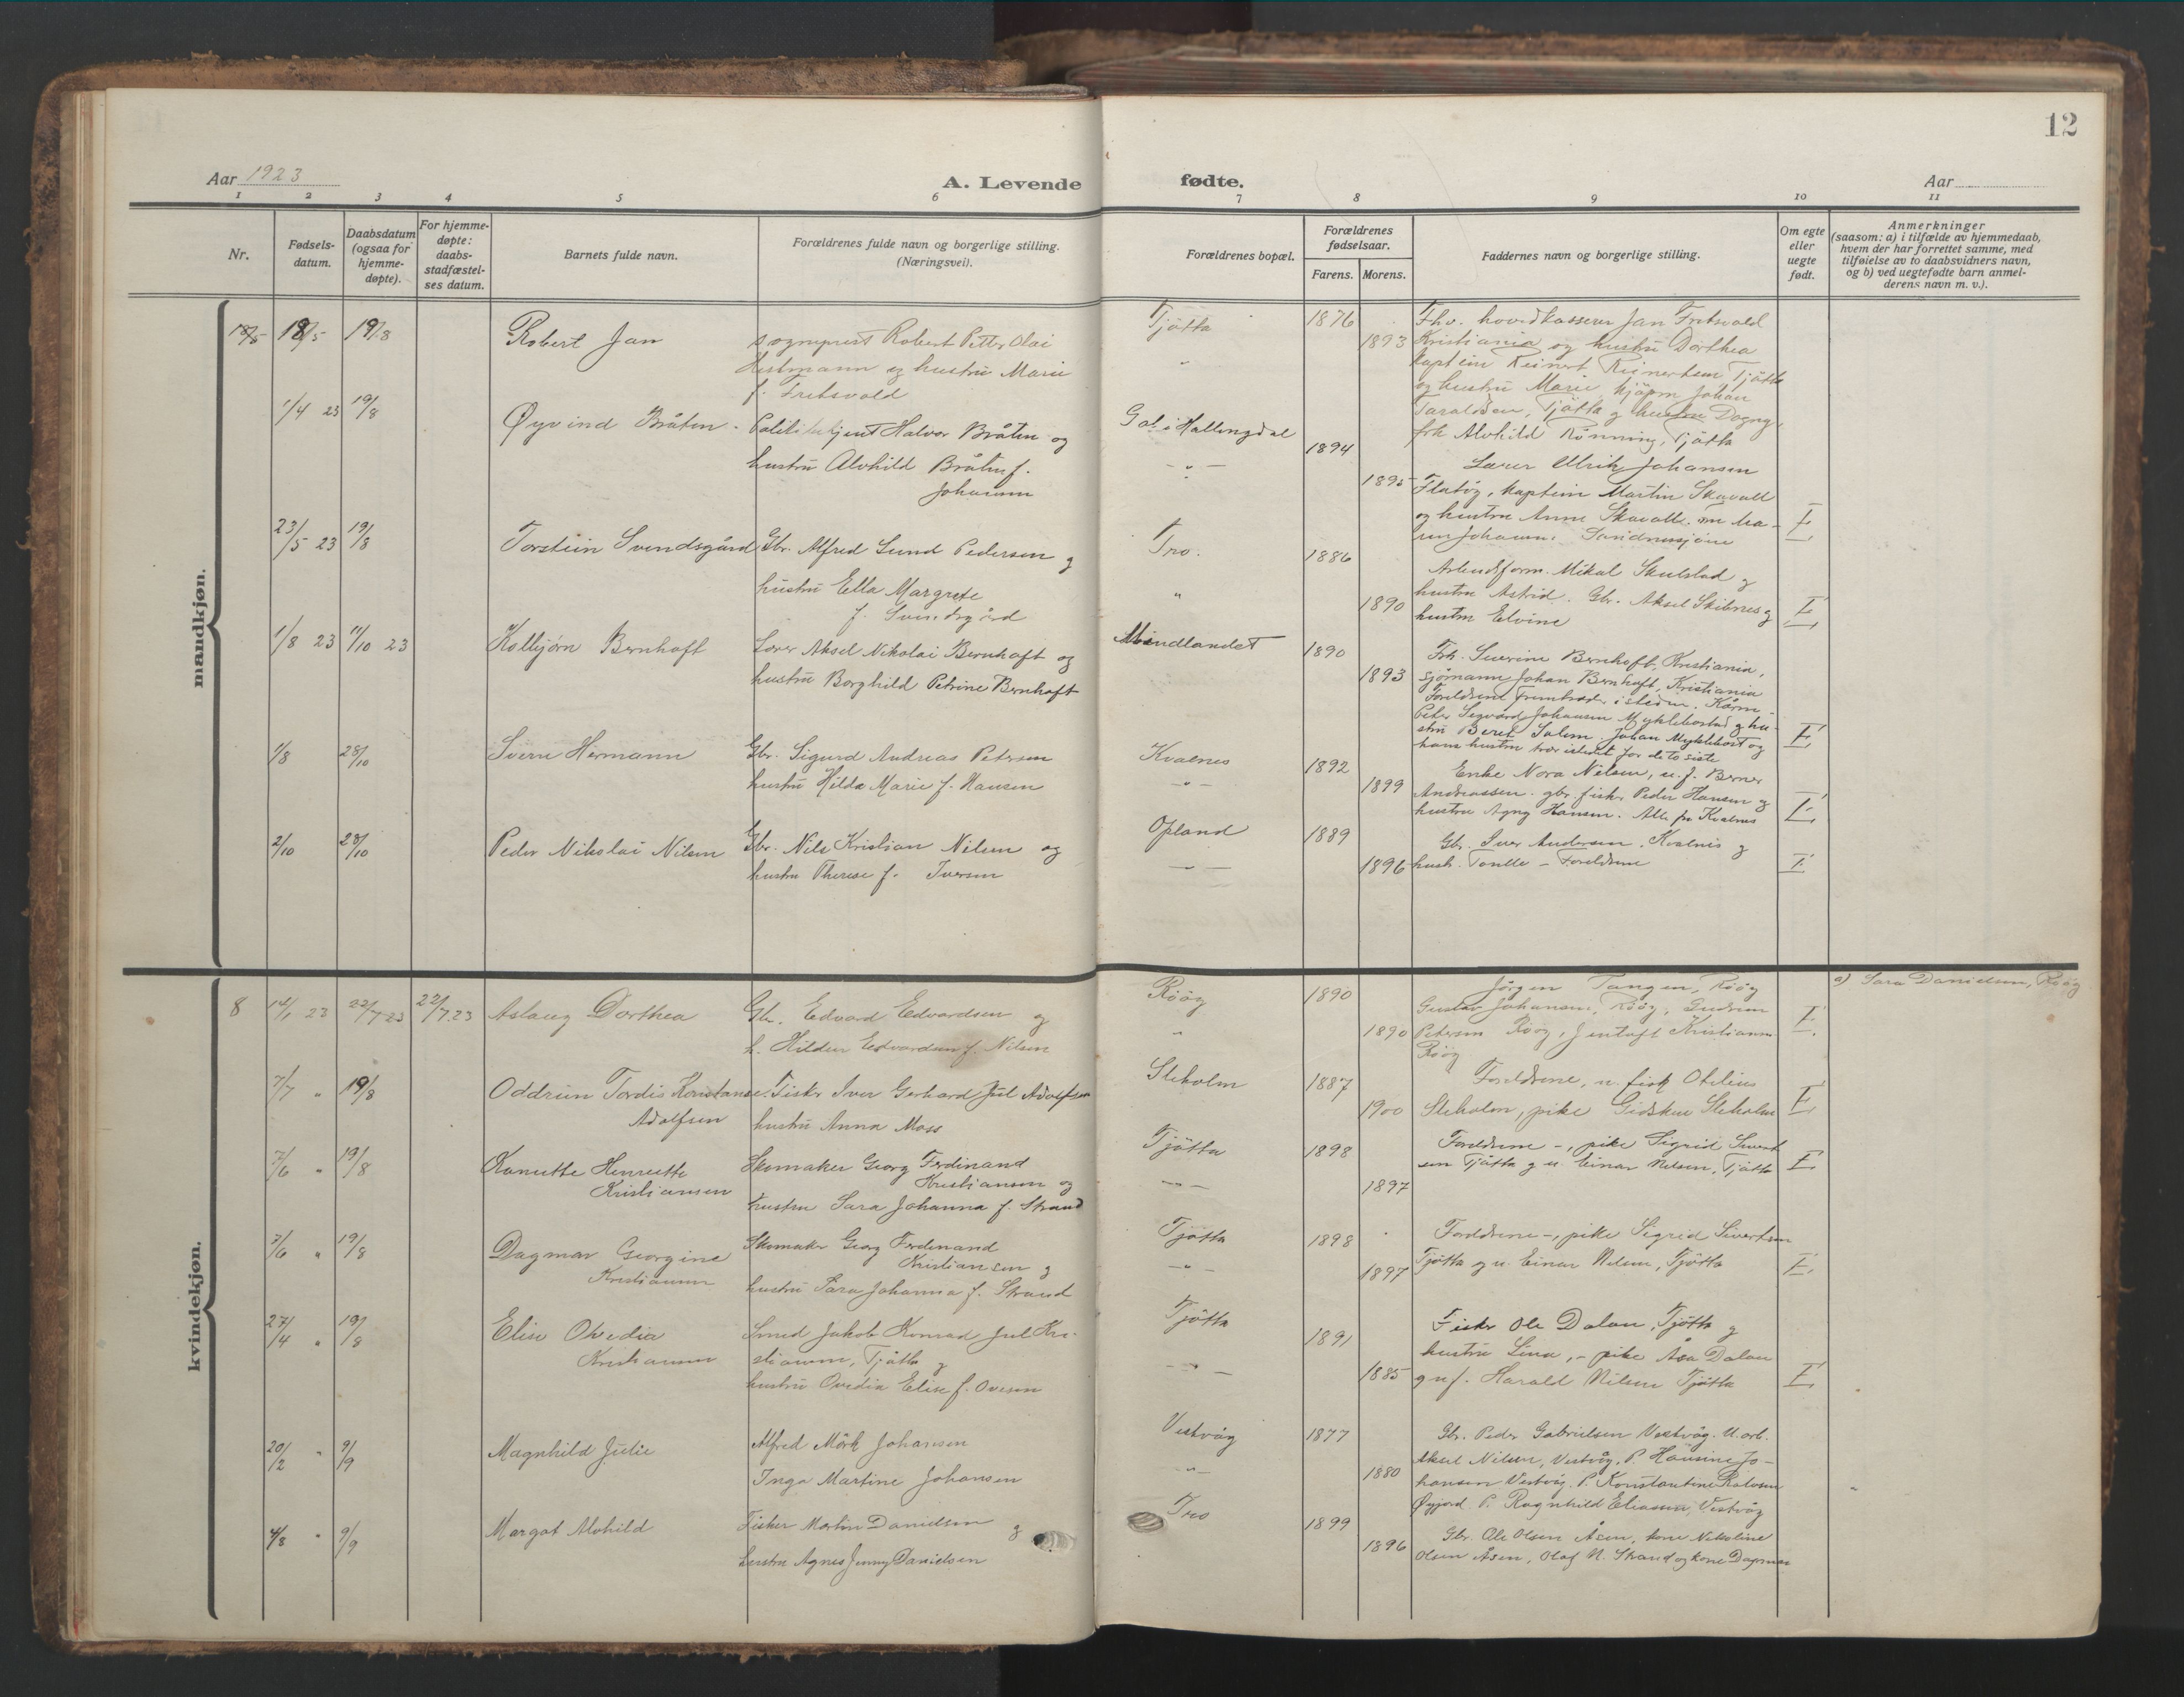 12
Aar 1923
A. Levende
fødte.
Aar
1 2 3 4 5 6 7 8 9 10 11
Nr.
Fødsels-
datum.
Daabsdatum
(ogsaa for
hjemme-
døpte).
For hjemme-
døpte:
daabs-
stadfæstel-
ses datum.
Barnets fulde navn.
Forældrenes fulde navn og borgerlige stilling.
(Næringsvei).
Forældrenes bopæl.
Forældrenes
fødselsaar.
Farens. Morens.
Faddernes navn og borgerlige stilling.
Om egte
eller
uegte
født.
Anmerkninger
(saasom: a) i tilfælde av hjemmedaab,
hvem der har forrettet samme, med
tilføielse av to daabsvidners navn,
og b) ved uegtefødte barn anmel-
derens navn m. v.).
mandkjøn.
18/5 18/5 19/8 Robert Jan
sogneprest Robert Petter Olai
Hestmann og hustru Marie
f. Fretsvold
Tjøtta 1876
" 1893
Fhv. hovedkasserer Jan Fretsvold
Kristiania og hustru Dorthea
kaptein Reinert Reinertsen, Tjøtta
og hustru Marie, kjøpm Johan
Taraldsen, Tjøtta og hustru Dagny,
frk Alvhild Rønning, Tjøtta
1/4 23 19/8 Øyvind Bråten
Halvor Bråten og
hustru Alvhild Bråten f.
Johansen
Gol i Hallingdal 1894
- " - 1895
Lærer Ulrik Johansen
Flatøy, kaptein Martin Skavall
og hustru Anne Skavall.
Johansen Sandnessjøen
E
23/5 23 19/8 Torstein Svendsgård
Gbr. Alfred Lund Pedersen og
hustru Ella Margrete
f. Svendsgård
Tro. 1886
" 1890
Arbeidsform. Mikal Skulstad og
hustru Astrid. Gbr. Aksel Skibnes og
hustru Elvine
E
1/8 23 11/10 23 Kolbjørn Bernhoft
Lærer Aksel Nikolai Bernhoft og
hustru Borghild Petrine Bernhoft
Mindlandet 1890
1893
Frk. Severine Bernhoft, Kristiania,
sjømann Johan Bernhoft, Kristiania
Foreldrene isteden.
Peter Segvard Johansen Myklebostad og hu-
stru Beret Salem. Johan Myklebost og
hans hustru trær istedet for de to siste
E
1/8 28/10 Sverre Hermann
Gbr. Sigurd Andreas Petersen
hustru Hilda Marie f. Hansen
Kvalnes 1892
- " - 1899
Enke Nora Nilsen, u.f. Berner
Andreassen. gbr. fisker Peder Hansen og
hustru Agny Hansen. Alle fra Kvalnes
E
2/10 28/10 Peder Nikolai Nilsen
Gbr. Nils Kristian Nilsen og
hustru Therese f. Iversen
Opland 1889
1896
Gbr. Iver Andersen, Kvalnes og
hustr. Tomille - Foreldrene
E
kvindekjøn.
8 14/1 23 22/7 23 22/7.23 Aslaug Dorthea
Gbr. Edvard Edvardsen og
h. Hildur Edvardsen f. Nilsen
Røøy 1890
" 1890
Jørgen Tangen, Røøy
Gustav Johansen, Røøy, Gudrun
Petersen Røøy, Jentoft Kristiansen
Røøy
E
a) Sara Danielsen, Røøy
7/7 " 19/8 Oddrun Tordis Konstanse
Adolfsen
Fisker Iver Gerhard Jul Adolfsen
hustru Anna Moss
Sleholm 1887
1900
Foreldrene, u. fisk Otelius
Sleholm, pike Gidsken Sleholm
E
7/6 " 19/8 Kanutte Henriette
Kristiansen
Skomaker Georg Ferdinand
Kristiansen og
hustru Sara Johanna f. Strand
Tjøtta 1898
- " - 1897
Foreldrene -, pike Sigrid Sivert
sen Tjøtta og u. Einar Nilsen, Tjøtta
E
7/6 " 19/8 Dagmar Georgine
Kristiansen
Skomaker Georg Ferdinand
Kristiansen og
hustru Sara Johanna f. Strand
Tjøtta 1898
- " - 1897
Foreldrene -, pike Sigrid Sivertsen
Tjøtta og u. Einar Nilsen, Tjøtta
E
27/4 " 19/8 Elise Ovedia
Kristiansen
Smed Jakob Konrad Jul Kri-
stiansen, Tjøtta og
hustru Ovedia Elise f. Ovesen
Tjøtta 1891
- " - 1885
Fisker Ole Dalan, Tjøtta og
hustru Lina, - pike Åsa Dalan
og u.f. Harald Nilsen Tjøtta
E
20/2 " 9/9 Magnhild Julie
Alfred Mørk Johansen
Inga Martine Johansen
Vestvåg 1877
- " - 1880
Gbr. Peder Gabrielsen Vestvåg. U. arb.
Aksel Nilsen, Vestvåg. P. Hansine Jo-
hansen Vestvåg. P. Konstantine
Øyjord P. Ragnhild Eliassen, Vestvåg
4/8 " 9/9 Margot Alvhild
Fisker Martin Danielsen og
hustru Agnes Jenny Danielsen
Tro 1899
1896
Gbr. Ole Olsen Åsen, kone Nikoline
Olsen Åsen, Olaf N. Strand og kone Dagmar